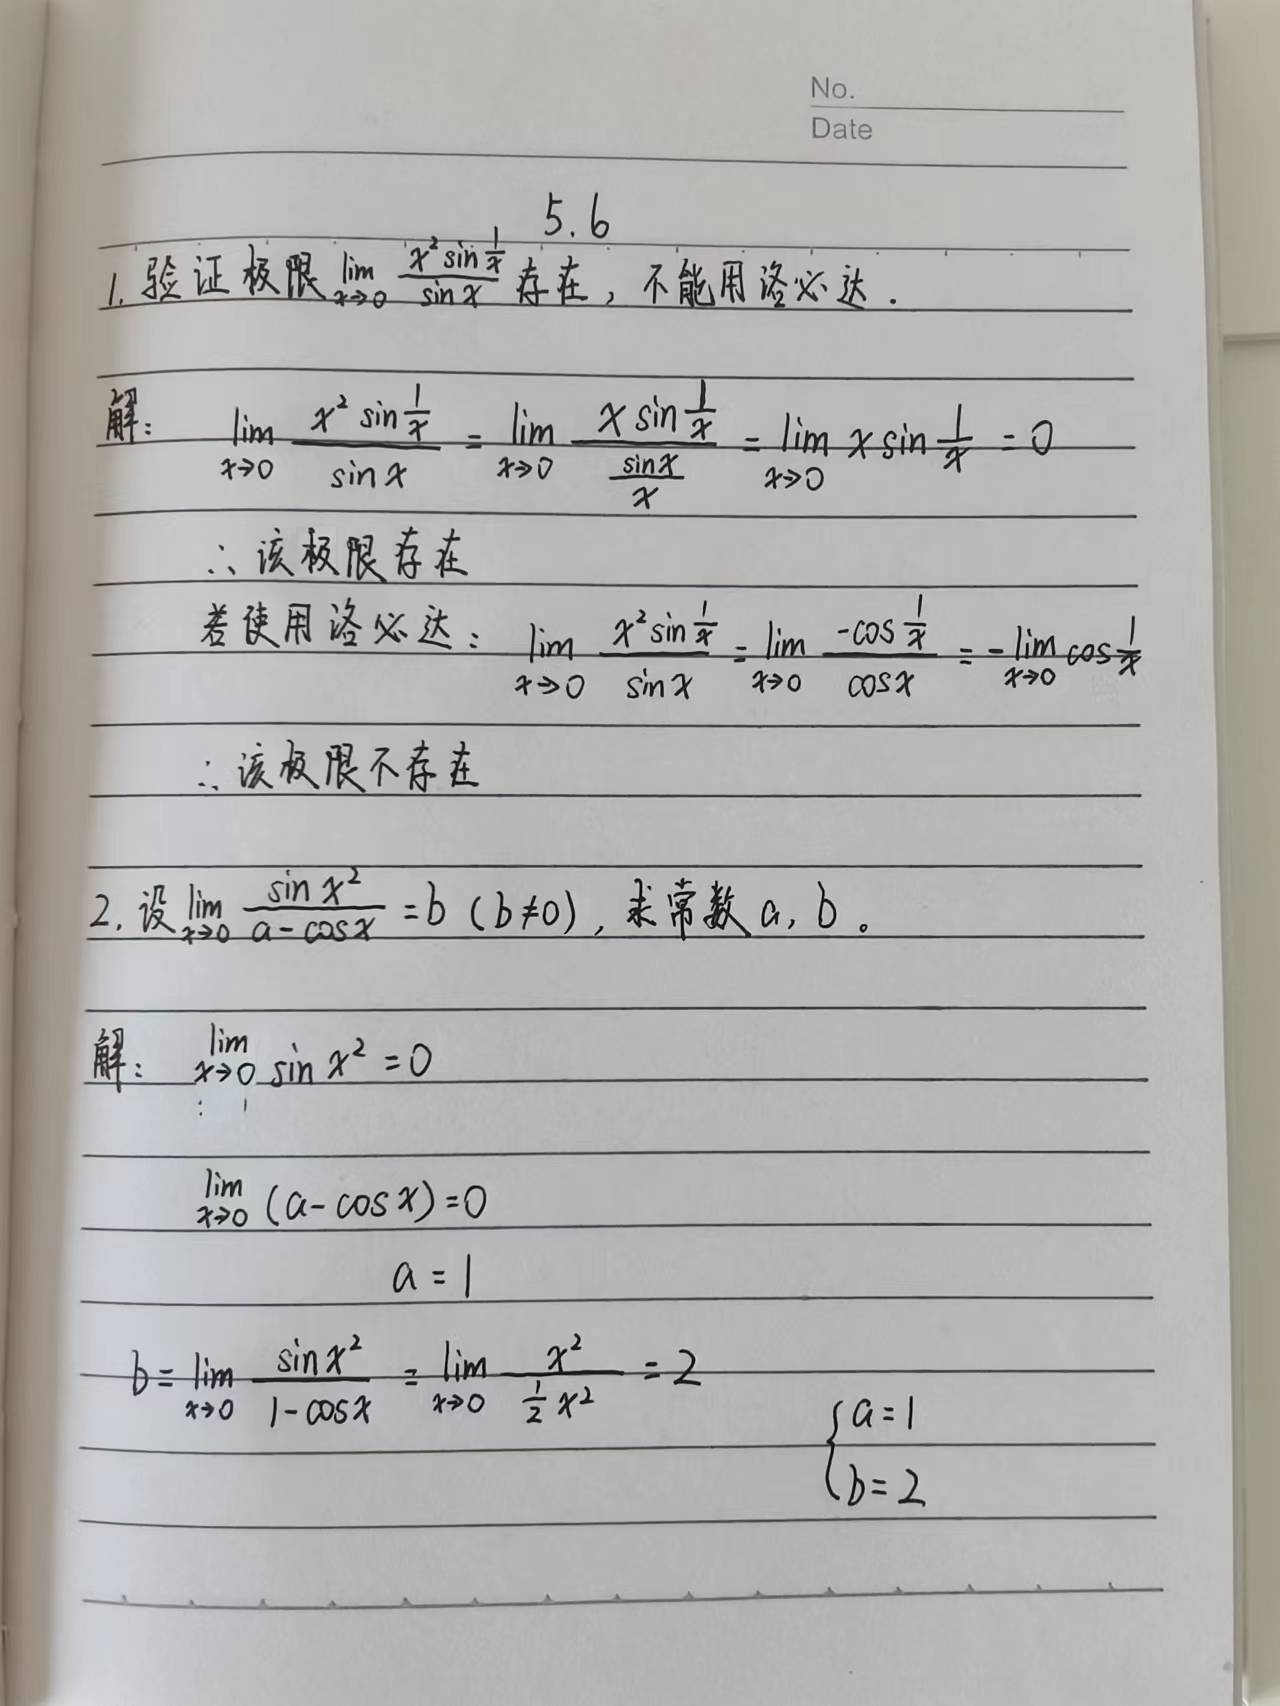 No.
Date
5.6
1. 验证极限 lim x→0 (x² sin 1/x)/(sin x) 存在, 不能用洛必达.
解: lim x→0 (x² sin 1/x)/(sin x) = lim x→0 (x sin 1/x)/(sin x/x) = lim x→0 x sin 1/x = 0
∴ 该极限存在
若使用洛必达: lim x→0 (x² sin 1/x)/(sin x) = lim x→0 (-cos 1/x)/(cos x) = - lim x→0 cos 1/x
∴ 该极限不存在
2. 设 lim x→0 (sin x²)/(a - cos x) = b (b≠0), 求常数 a, b。
解: lim x→0 sin x² = 0
lim x→0 (a - cos x) = 0
a = 1
b = lim x→0 (sin x²)/(1 - cos x) = lim x→0 x²/(1/2 x²) = 2
{ a = 1
b = 2